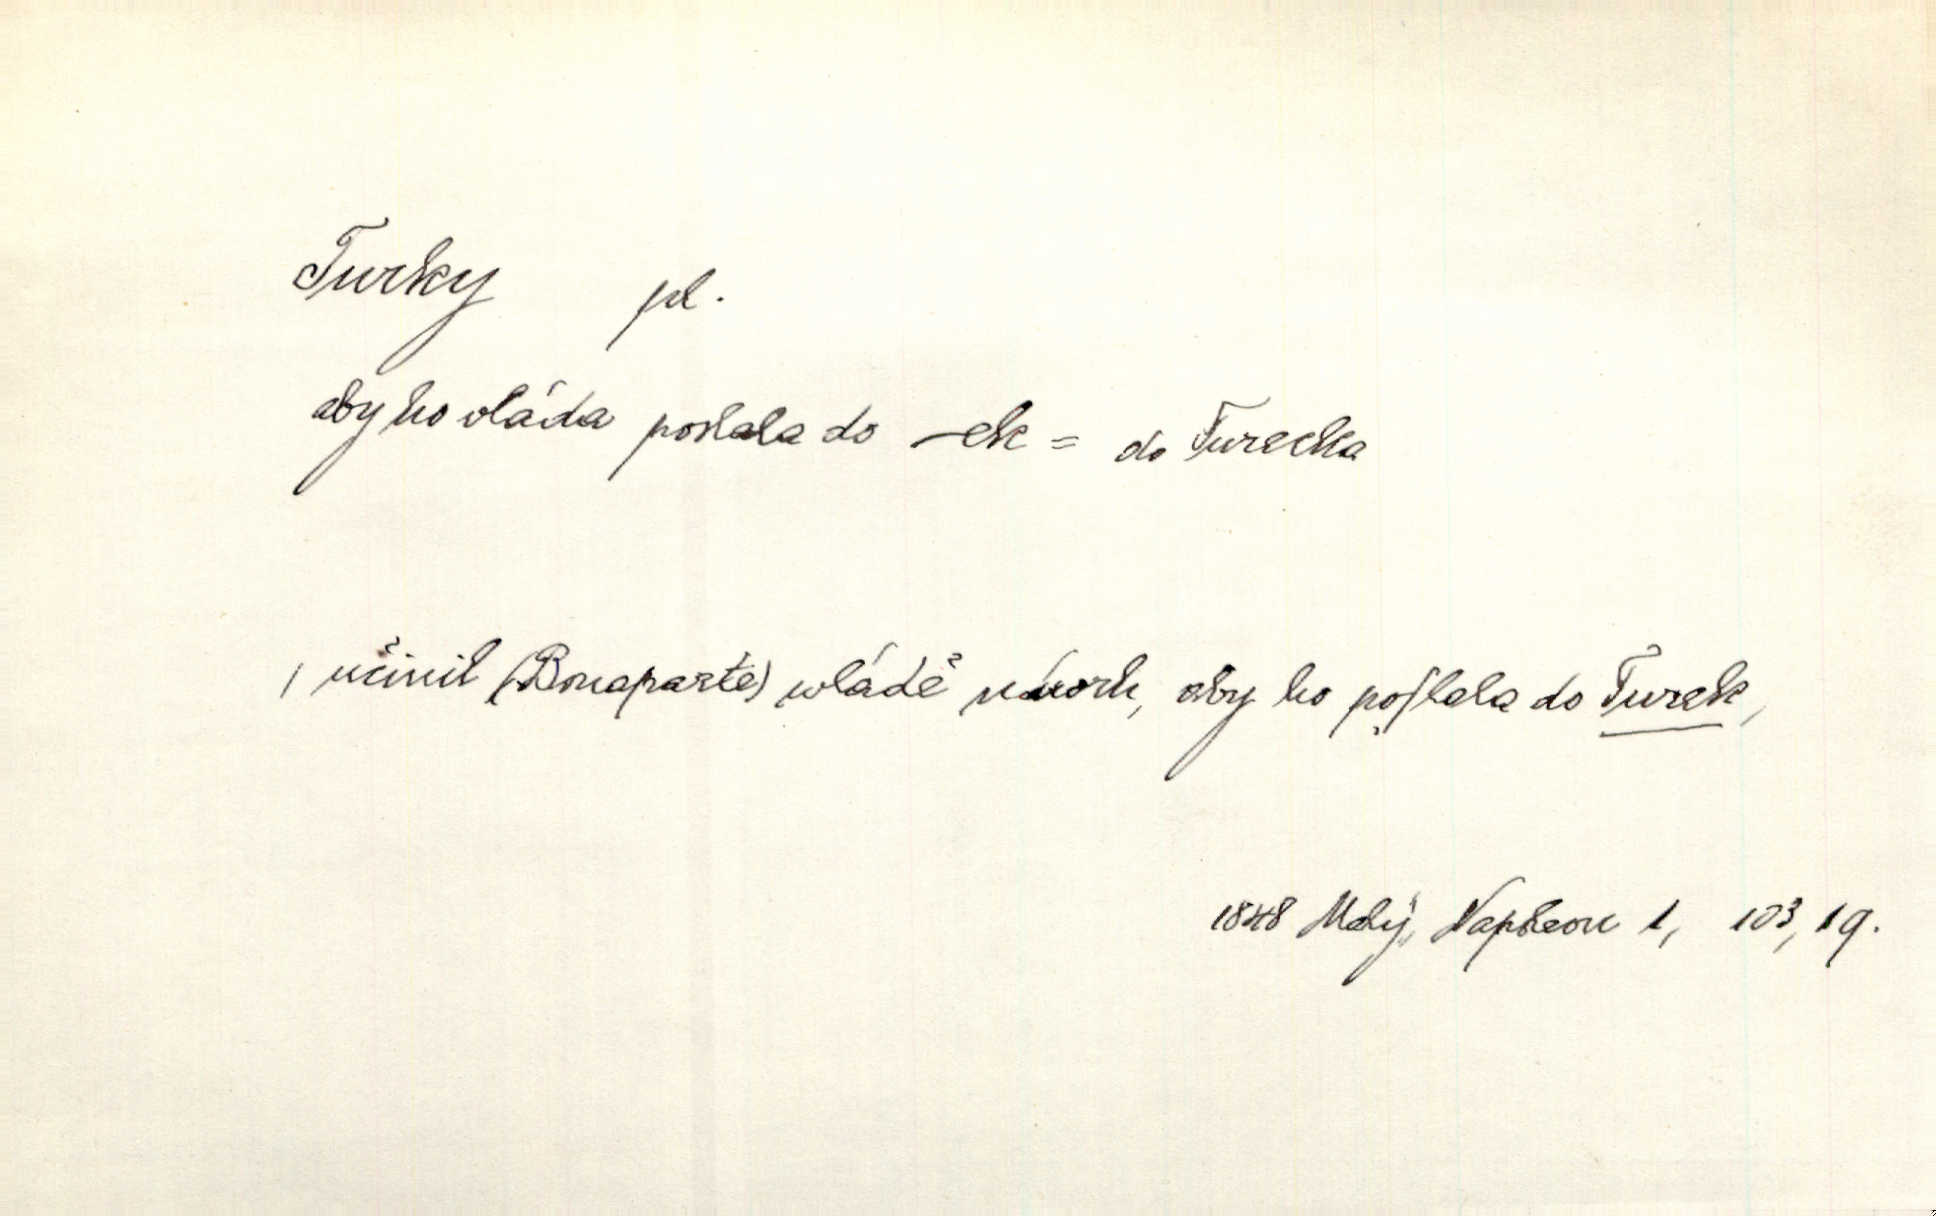 Turky pl.
aby ho vláda poslala do -ek = do Turecka
, učinil (Bonaparte) wládě návrh, aby ho poſlala do Turek,
1848 Malý, Napoleon 1, 103, 19.